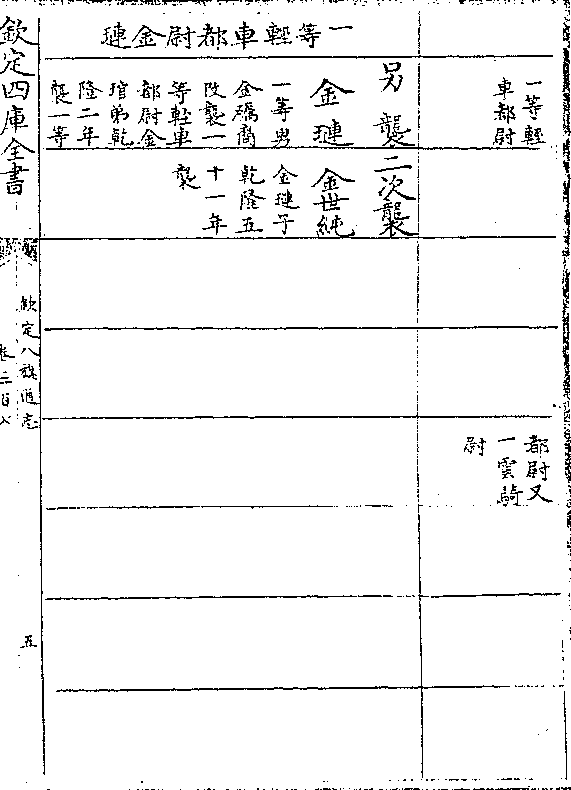 一等輕
車都尉
都尉又
一雲騎
尉
一等輕車都尉金璉
另襲
金璉
一等男
金礪裔
改襲一
等輕車
都尉金
琯弟乾
隆二年
襲一等
二次襲
金世純
金璉子
乾隆五
十一年
襲
欽定四庫全書
欽定八旗通志
卷二百八
五